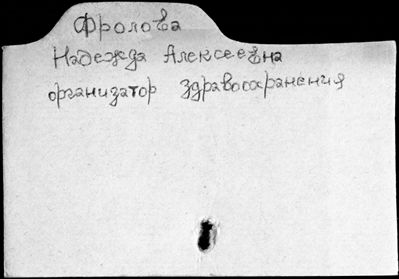 Фролова
Надежда Алексеевна
организатор здравоохранения